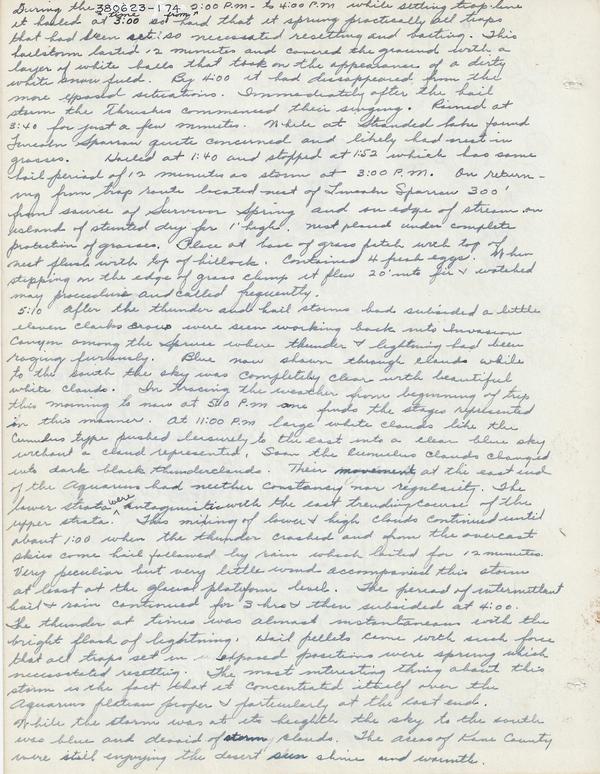 During the 380623-174 2:00 P.M. to 4:00 P.M. while setting trap line
it hailed at 3:00 so hard that it sprung practically all traps
that had been set: so necessitated resetting and baiting. This
hailstorm lasted 12 minutes and covered the ground with a
layer of white balls that took on the appearance of a dirty
white snow field. By 4:00 it had dissappeared from the
more exposed situations. Immediately after the hail
storm the Thrushes commenced their singing. Rained at
3:40 for just a few minutes. While at Stranded Lake found
Lincoln Sparrow quite concerned and likely had nest in
grasses. Hailed at 1:40 and stopped at 1:52 which has same
hail period of 12 minutes as storm at 3:00 P.M. On return-
ing from trap route located nest of Lincoln Sparrow 300'
from source of Survivor Spring and on edge of stream on
island of stunted dry fir 1' high. nest placed under complete
protection of grasses. Place at base of grass patch with top of
nest flush with top of hillock. Contained 4 fresh eggs. When
stepping on the edge of grass clump it flew 20' into fir & watched
may procedure and called frequently.
5:10 After the thunder and hail storms had subsided a little
eleven clarks crows were seen working back into Invasion
Canyon among the Spruce where thunder & lightning had been
raging furiously. Blue now shown through clouds while
to the south the sky was completely clear with beautiful
white clouds. In tracing the weather from beginning of trip
this morning to now at 5:10 P.m one finds the stages represented
in this manner. At 11:00 P.m large white clouds like the
Cumulus type pushed leisurely to the east into a clear blue sky
without a cloud represented. Soon the cumulus clouds changed
into dark black thunderclouds. Their movement at the east end
of the Aquarius had neither constancy nor regularity. The
lower strata were antagonistic with the east trending course of the
upper strata. This mixing of lower & high clouds continued until
about 1:00 when the thunder crashed and from the overcast
skies come hail followed by rain which lasted for 12 minutes.
Very peculiar but very little wind accompanied this storm
at least at the glacial platform level. The period of intermittent
hail & rain continued for 3 hrs & then subsided at 4:00.
The thunder at times was almost instantaneous with the
bright flash of lightning. Hail pellets came with such force
that all traps set in exposed positions were sprung which
necessitated resetting. The most interesting thing about this
storm is the fact that it concentrated itself over the
Aquarius plateau proper & particularly at the east end.
While the storm was at its heighth the sky to the south
was blue and devoid of storm clouds. The areas of Kane County
were still enjoying the desert sun shine and warmth.